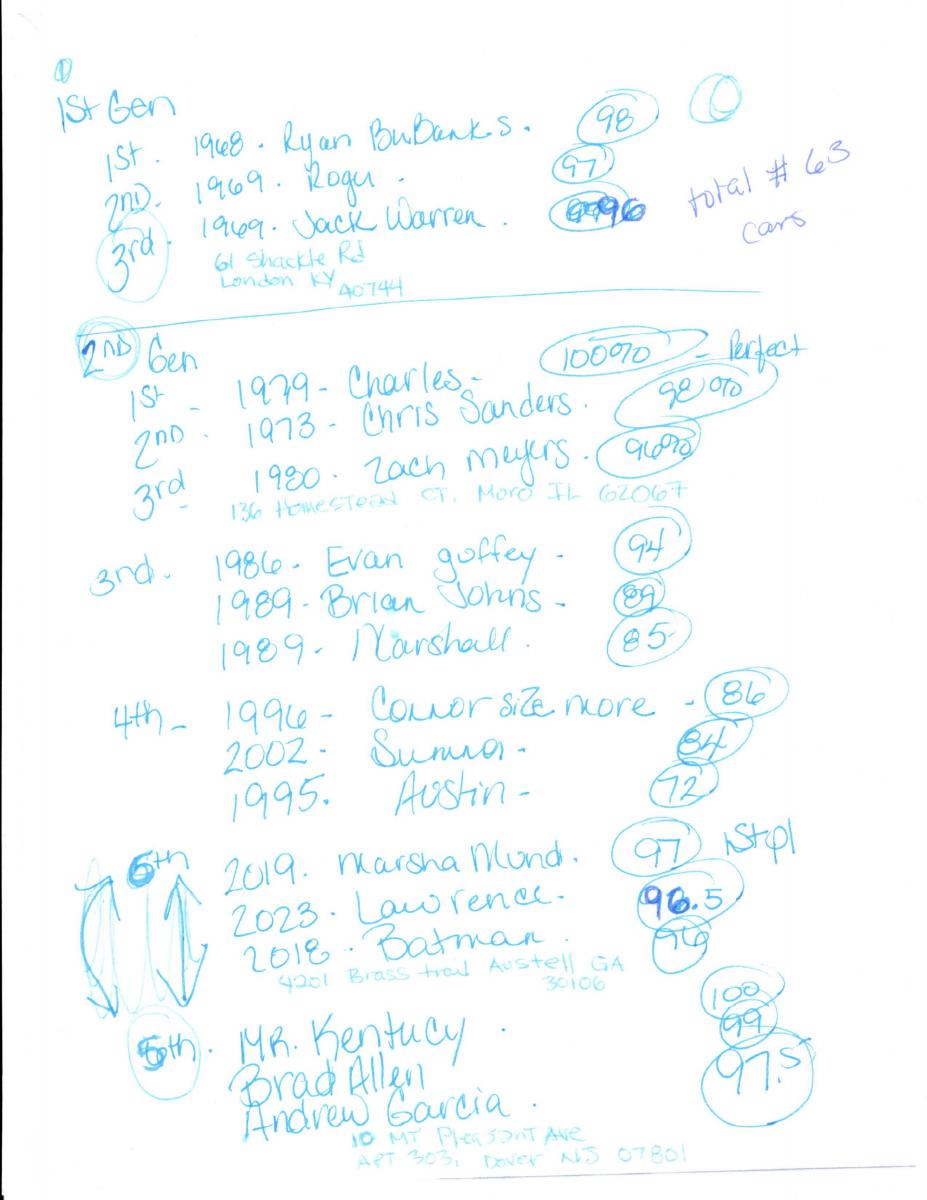 1
1st Gen
1st. 1968. Ryan BuBanks. 98
2ND. 1969. Rogu. 97
3rd. 1969. Jack Warren. 96
total # 63
cars
61 Shackle Rd
London KY
40744
2ND Gen
1st - 1979 - Charles - 100% - Perfect
2ND. 1973 - Chris Sanders. 98%
3rd - 1980. Zach Meyers. 96%
136 Homestead CT. Moro IL 62067
3nd. 1986. Evan guffey - 94
1989 - Brian Johns - 89
1989 - Marshall. 85
4th - 1996 - Connor Sizemore - 86
2002 - 84
1995. Austin - 72
6th 2019. Marsha Mund. 97 1st pl
2023. Lawrence. 96.5
2018. Batman. 96
4201 Brass trail Austell GA
30106
5th. MR. Kentucy. 100
Brad Allen 99
Andrew Garcia. 97.5
10 MT Pleasant Ave
APT 303, Dover NJ 07801